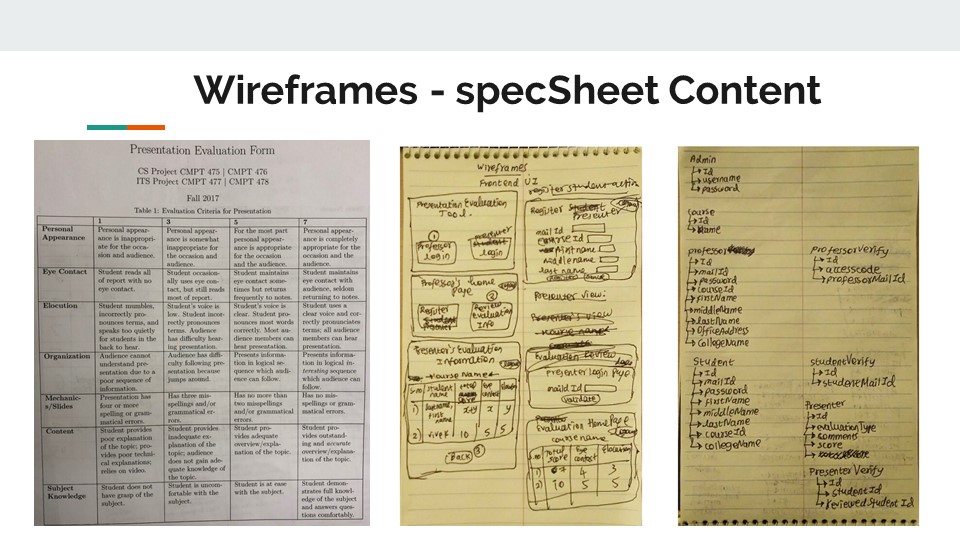 Wireframes - specSheet Content
Presentation Evaluation Form
CS Project CMPT 475 | CMPT 476
ITS Project CMPT 477 | CMPT 478
Fall 2017
Table 1: Evaluation Criteria for Presentation
1 3 5 7
Personal Appearance
Personal appearance is inappropriate for the occasion and audience.
Personal appearance is somewhat inappropriate for the occasion and audience.
For the most part personal appearance is appropriate for the occasion and the audience.
Personal appearance is completely appropriate for the occasion and the audience.
Eye Contact
Student reads all of report with no eye contact.
Student occasionally uses eye contact, but still reads most of report.
Student maintains eye contact sometimes but returns frequently to notes.
Student maintains eye contact with audience, seldom returning to notes.
Elocution
Student mumbles, incorrectly pronounces terms, and speaks too quietly for students in the back to hear.
Student's voice is low. Student incorrectly pronounces terms. Audience has difficulty hearing presentation.
Student's voice is clear. Student pronounces most words correctly. Most audience members can hear presentation.
Student uses a clear voice and correctly pronunciates terms; all audience members can hear presentation.
Organization
Audience cannot understand presentation due to a poor sequence of information.
Audience has difficulty following presentation because jumps around.
Presents information in logical sequence which audience can follow.
Presents information in logical interesting sequence which audience can follow.
Mechanics/Slides
Presentation has four or more spelling or grammatical errors.
Has three misspellings and/or grammatical errors.
Has no more than two misspellings and/or grammatical errors.
Has no misspellings or grammatical errors.
Content
Student provides poor explanation of the topic; provides poor technical explanations; relies on video.
Student provides inadequate explanation of the topic; audience does not gain adequate knowledge of the topic.
Student provides adequate overview/explanation of the topic.
Student provides outstanding and accurate overview/explanation of the topic.
Subject Knowledge
Student does not have grasp of the subject.
Student is uncomfortable with the subject.
Student is at ease with the subject.
Student demonstrates full knowledge of the subject and answers questions comfortably.
Wireframes
Frontend UI
Presentation Evaluation Tool.
1
Professor login
login
Professor's home page
2
Register
Review Evaluation Info
Presenter's Evaluation Information
Course Name
student name
eye contact
2) vivek 10 5 5
Back 3
register student action
Register Presenter
mail Id
course Id
first name
middle name
last name
Presenter view:
Evaluation Review
Presenter Login Page
maild Id
validate
Evaluation Home Page
course name
S.no Total score eye contact Elocution
1) 07 4 3
2) 10 5 5
Admin
Id
username
password
course
Id
Name
professor
Id
mailId
password
courseId
firstName
middleName
lastName
OfficeAddress
CollegeName
professorVerify
Id
accesscode
professorMailId
Student
Id
mailId
password
firstName
middleName
lastName
courseId
collegeName
studentVerify
Id
studentMailId
Presenter
Id
evaluationType
comments
score
PresenterVerify
Id
studentId
reviewedStudentId